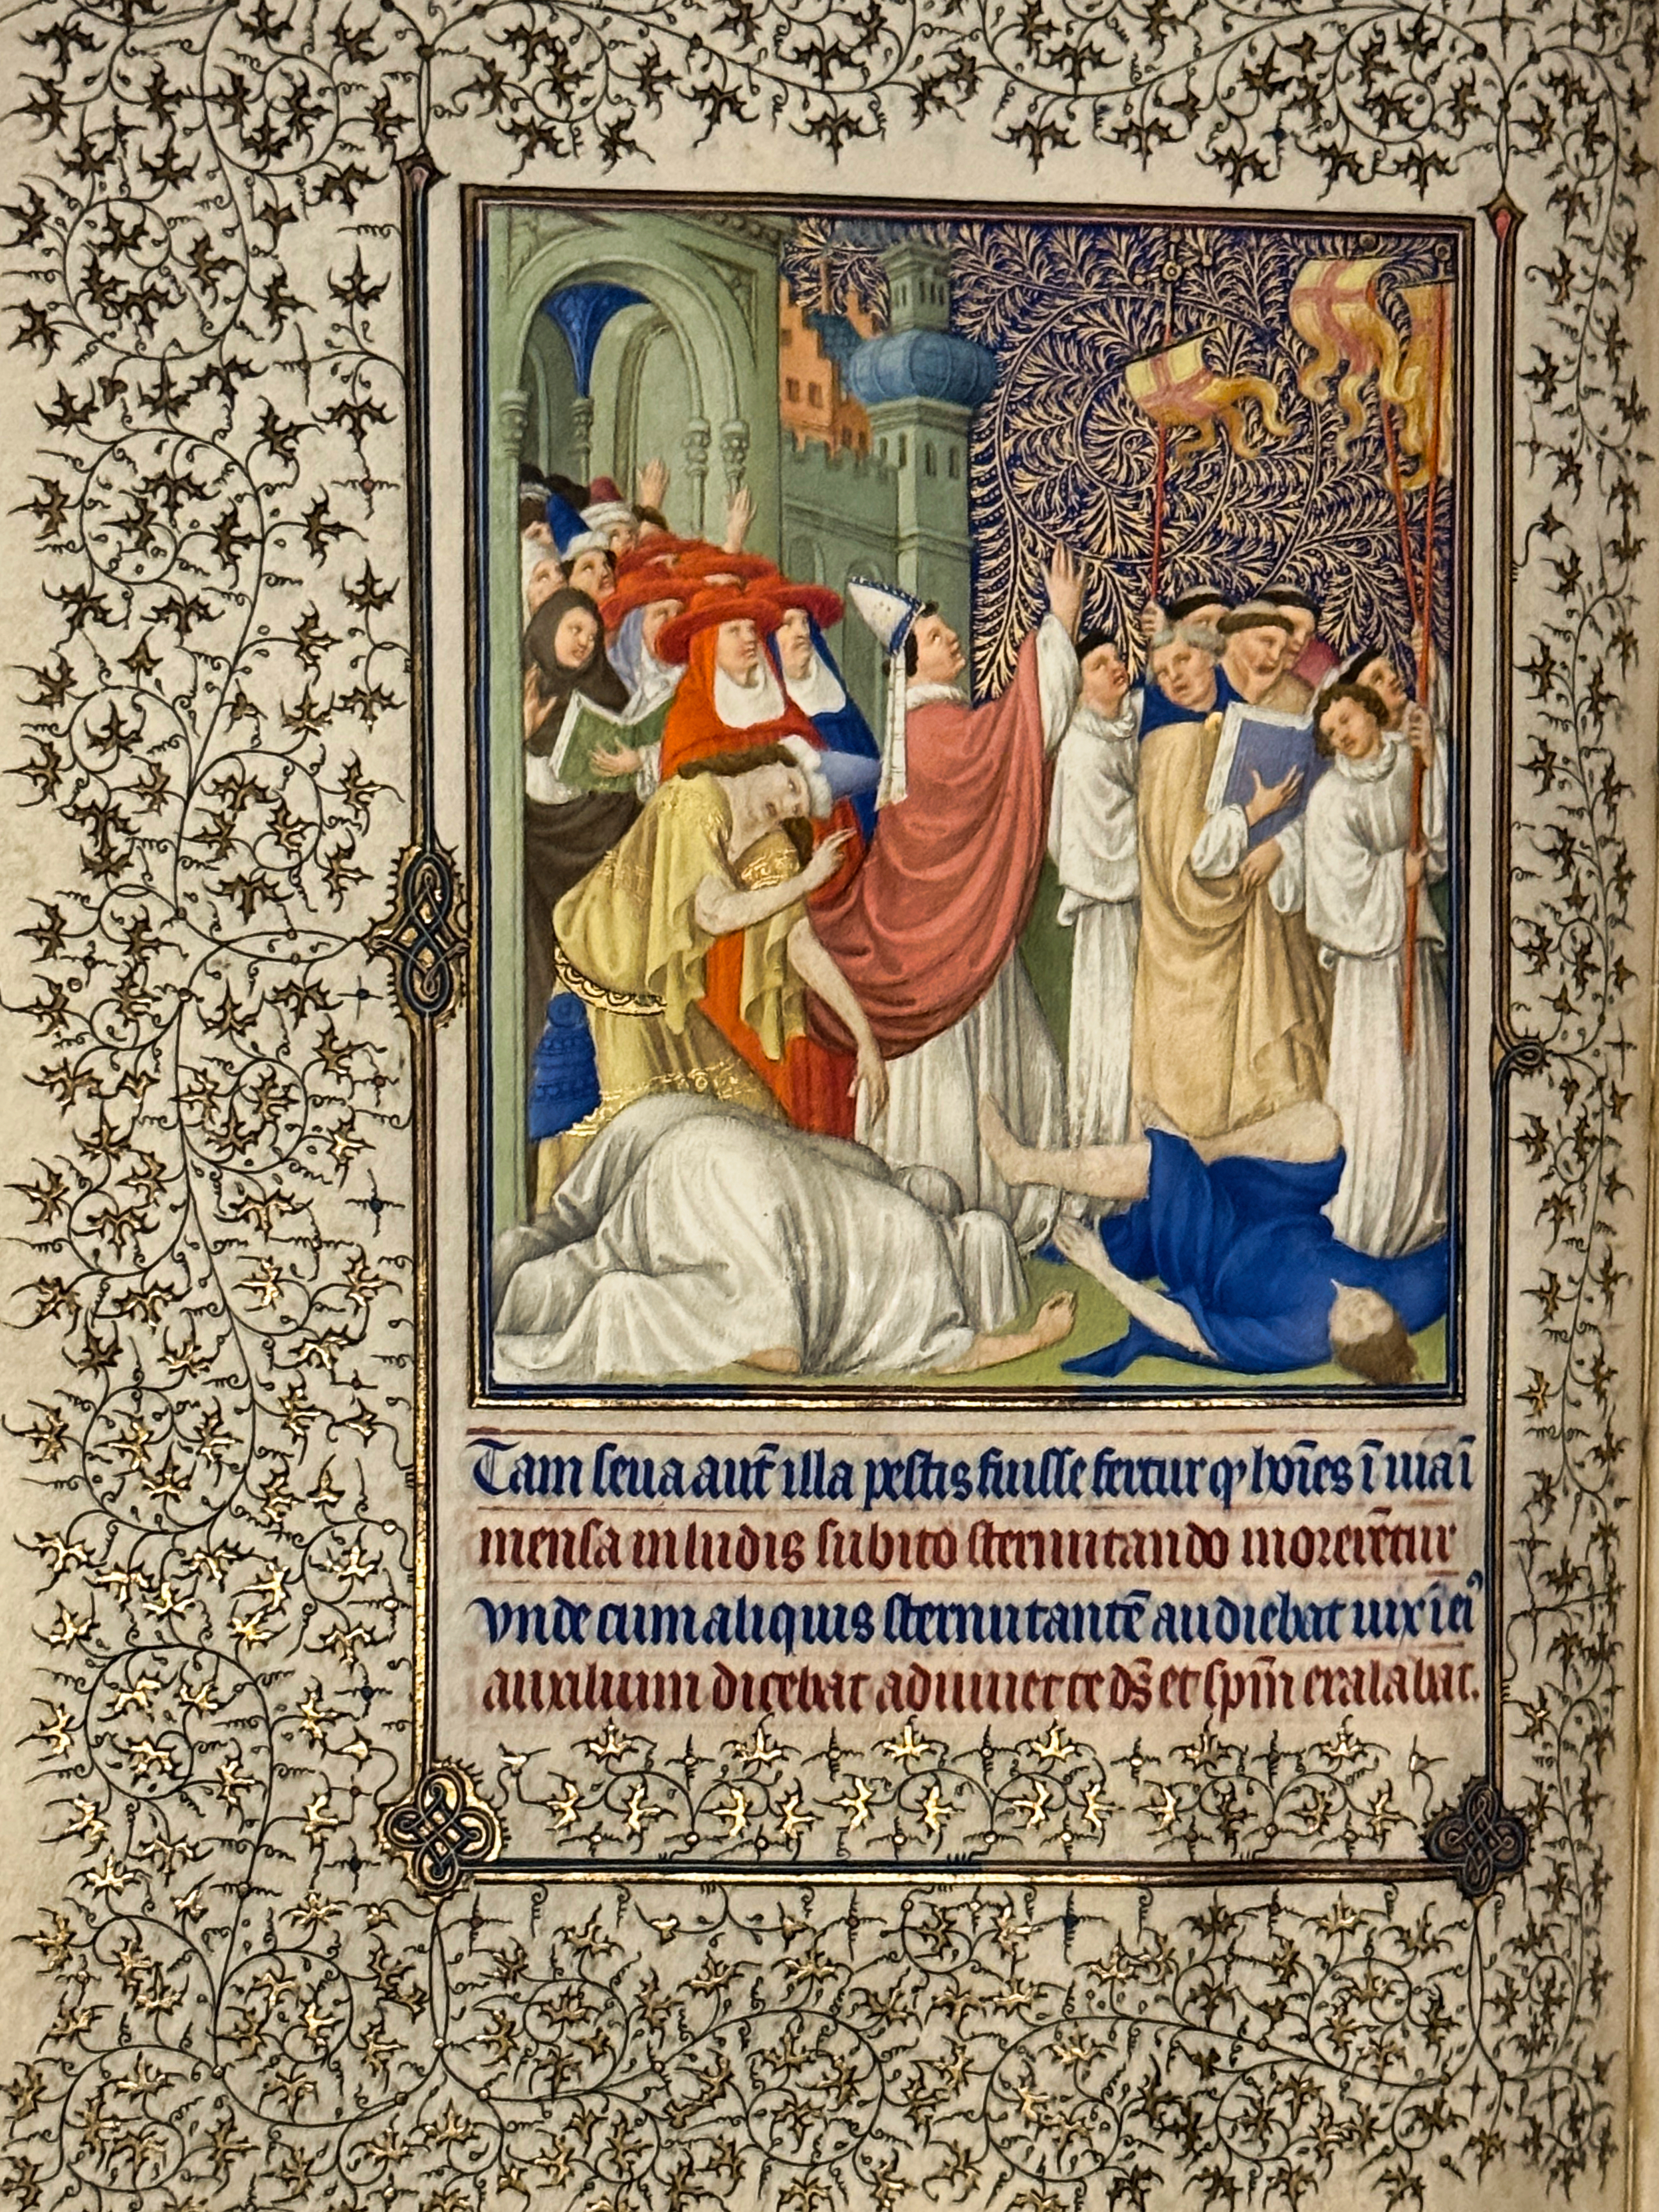 Tam seua aut̄ illa pestis fuisse fertur q̄ hoīes ī uia ī
mensa in ludis subito sternutando morerēt̄ur
vnde cum aliquis sternutantē audiebat uix ī eiꝰ
auxilium dicebat adiuuet te ds̄ et spm̄ exalabat.